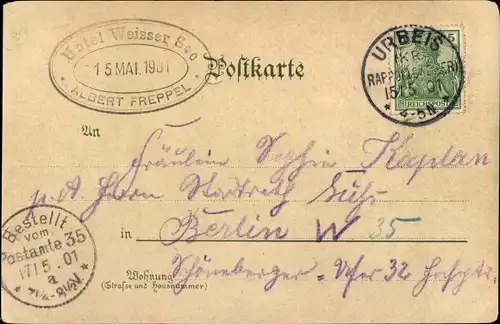 Hotel Weisser See
15 MAI. 1901
• ALBERT FREPPEL •
Postkarte
URBEIS
15/5 01
* 4-5N *
5
REICHSPOST
An
Fräulein Sophie Kaplan
p. A Herrn Stadtrath
in Berlin W 35
Wohnung
(Straße und Hausnummer)
Schöneberger-Ufer 32 Hochptr.
Bestellt
vom
Postamte 35
17/5.01
a
* 7¼-8½V *